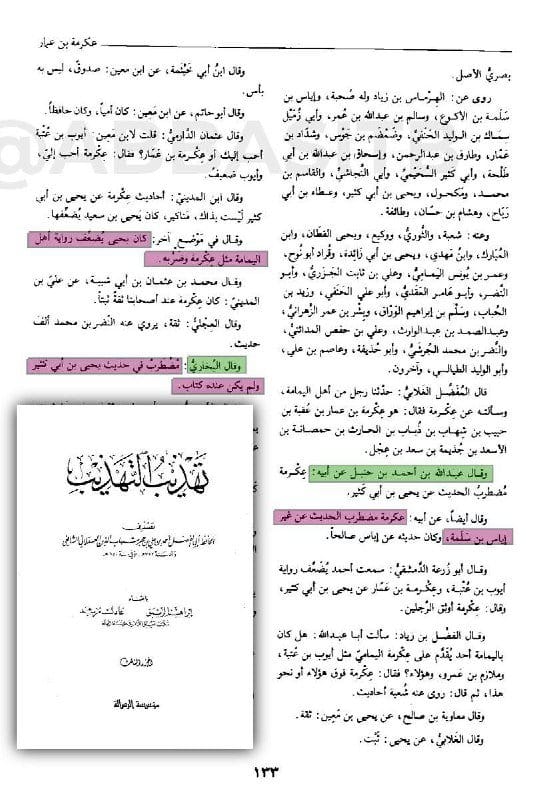 عكرمة بن عمار
بصريُّ الأصل.
روى عن: الهِرْماس بن زياد وله صُحبة، وإياس بن
سَلَمة بن الأكوع، وسالم بن عبدالله بن عُمر، وأبي زُمَيْل
سِماك بن الوليد الحَنَفي، وضَمْضَم بن جَوْس، وشدَّاد بن
عَمَّار، وطارق بن عبدالرحمن، وإسحاق بن عبدالله بن أبي
طَلْحة، وأبي كثير السُّحَيْمي، وأبي النَّجاشي، والقاسم بن
محمد، ومَكحول، ويحيى بن أبي كثير، وعطاء بن أبي
رَبَاح، وهشام بن حسَّان، وطائفة.
وعنه: شعبة، والثَّوري، ووكيع، ويحيى القَطان، وابن
المُبارك، وابنُ مَهدي، ويحيى بن أبي زائدة، وقُراد أبو نُوح،
وعمر بن يُونس اليَمامي، وعلي بن ثابت الجَزَري، وأبو
النَّضر، وأبو عامر العَقدي، وأبو علي الحَنَفي، وزيد بن
الحُباب، وسَلْم بن إبراهيم الوَرَّاق، وبِشْر بن عمر الزَّهراني،
وعبدالصمد بن عبدالوارث، وعلي بن حفص المدائني،
والنَّضر بن محمد الجُرَشي، وأبو حُذيفة، وعاصم بن علي،
وأبو الوليد الطيالسي، وآخرون.
قال المُفَضَّل الغَلابيُّ: حدَّثنا رجل من أهل اليمامة،
وسألته عن عِكرمة فقال: هو عِكرمة بن عمار بن عُقبة بن
حبيب بن شِهاب بن ذُباب بن الحارث بن حمصانة بن
الأسعد بن جُذيمة بن سعد بن عِجْل.
وقال عبدالله بن أحمد بن حنبل عن أبيه: عِكرمة
مُضطربُ الحديث عن يحيى بن أبي كَثير.
وقال أيضاً، عن أبيه: عكرمة مضطرب الحديث عن غير
إياس بن سَلَمة، وكان حديثه عن إياس صالحاً.
وقال أبو زُرعة الدِّمشقيُّ: سمعت أحمد يُضَعِّف رواية
أيوب بن عُتْبة، وعِكْرمة بن عَمَّار عن يحيى بن أبي كثير،
وقال: عِكرمة أوثق الرَّجلين.
وقال الفَضْل بن زياد: سألت أبا عبدالله: هل كان
باليمامة أحد يُقدَّم على عِكرمة اليماميّ مثل أيوب بن عُتبة،
وملازم بن عَمرو، وهؤلاء؟ فقال: عِكرمة فوق هؤلاء أو نحو
هذا، ثم قال: روى عنه شُعبة أحاديث.
وقال معاوية بن صالح، عن يحيى بن مَعين: ثقة.
وقال الغَلابيُّ، عن يحيى: ثَبْت.
وقال ابنُ أبي خَيْثمة، عن ابن معين: صدوقٌ، ليس به
بأس.
وقال أبو حاتم، عن ابن مَعين: كان أمياً، وكان حافظاً.
وقال عثمان الدَّارميُّ: قلت لابن مَعين: أيوب بن عُتْبة
أحب إليك أو عِكْرمة بن عَمَّار؟ فقال: عِكرمة أحب إليَّ،
وأيوب ضعيفٌ.
وقال ابن المدينيِّ: أحاديث عِكرمة عن يحيى بن أبي
كثير لَيْست بذاك، مَناكير، كان يَحيى بن سعيد يُضَعِّفها.
وقال في مَوْضع آخر: كان يحيى يُضَعِّف رواية أهل
اليَمامة مثل عكرمة وضَرْبه.
وقال محمد بن عثمان بن أبي شيبة، عن عليّ بن
المدينيّ: كان عِكرمة عند أصحابنا ثقةً ثبتاً.
وقال العِجْليُّ: ثقة، يروي عنه النَّضر بن محمد ألف
حديث.
وقال البُخاريُّ: مُضْطرب في حديث يحيى بن أبي كثير
ولم يكن عنده كتاب.
تهذيب التهذيب
باعتناء
إبراهيم الزيبق عادل مرشد
مؤسسة الرسالة
١٣٣